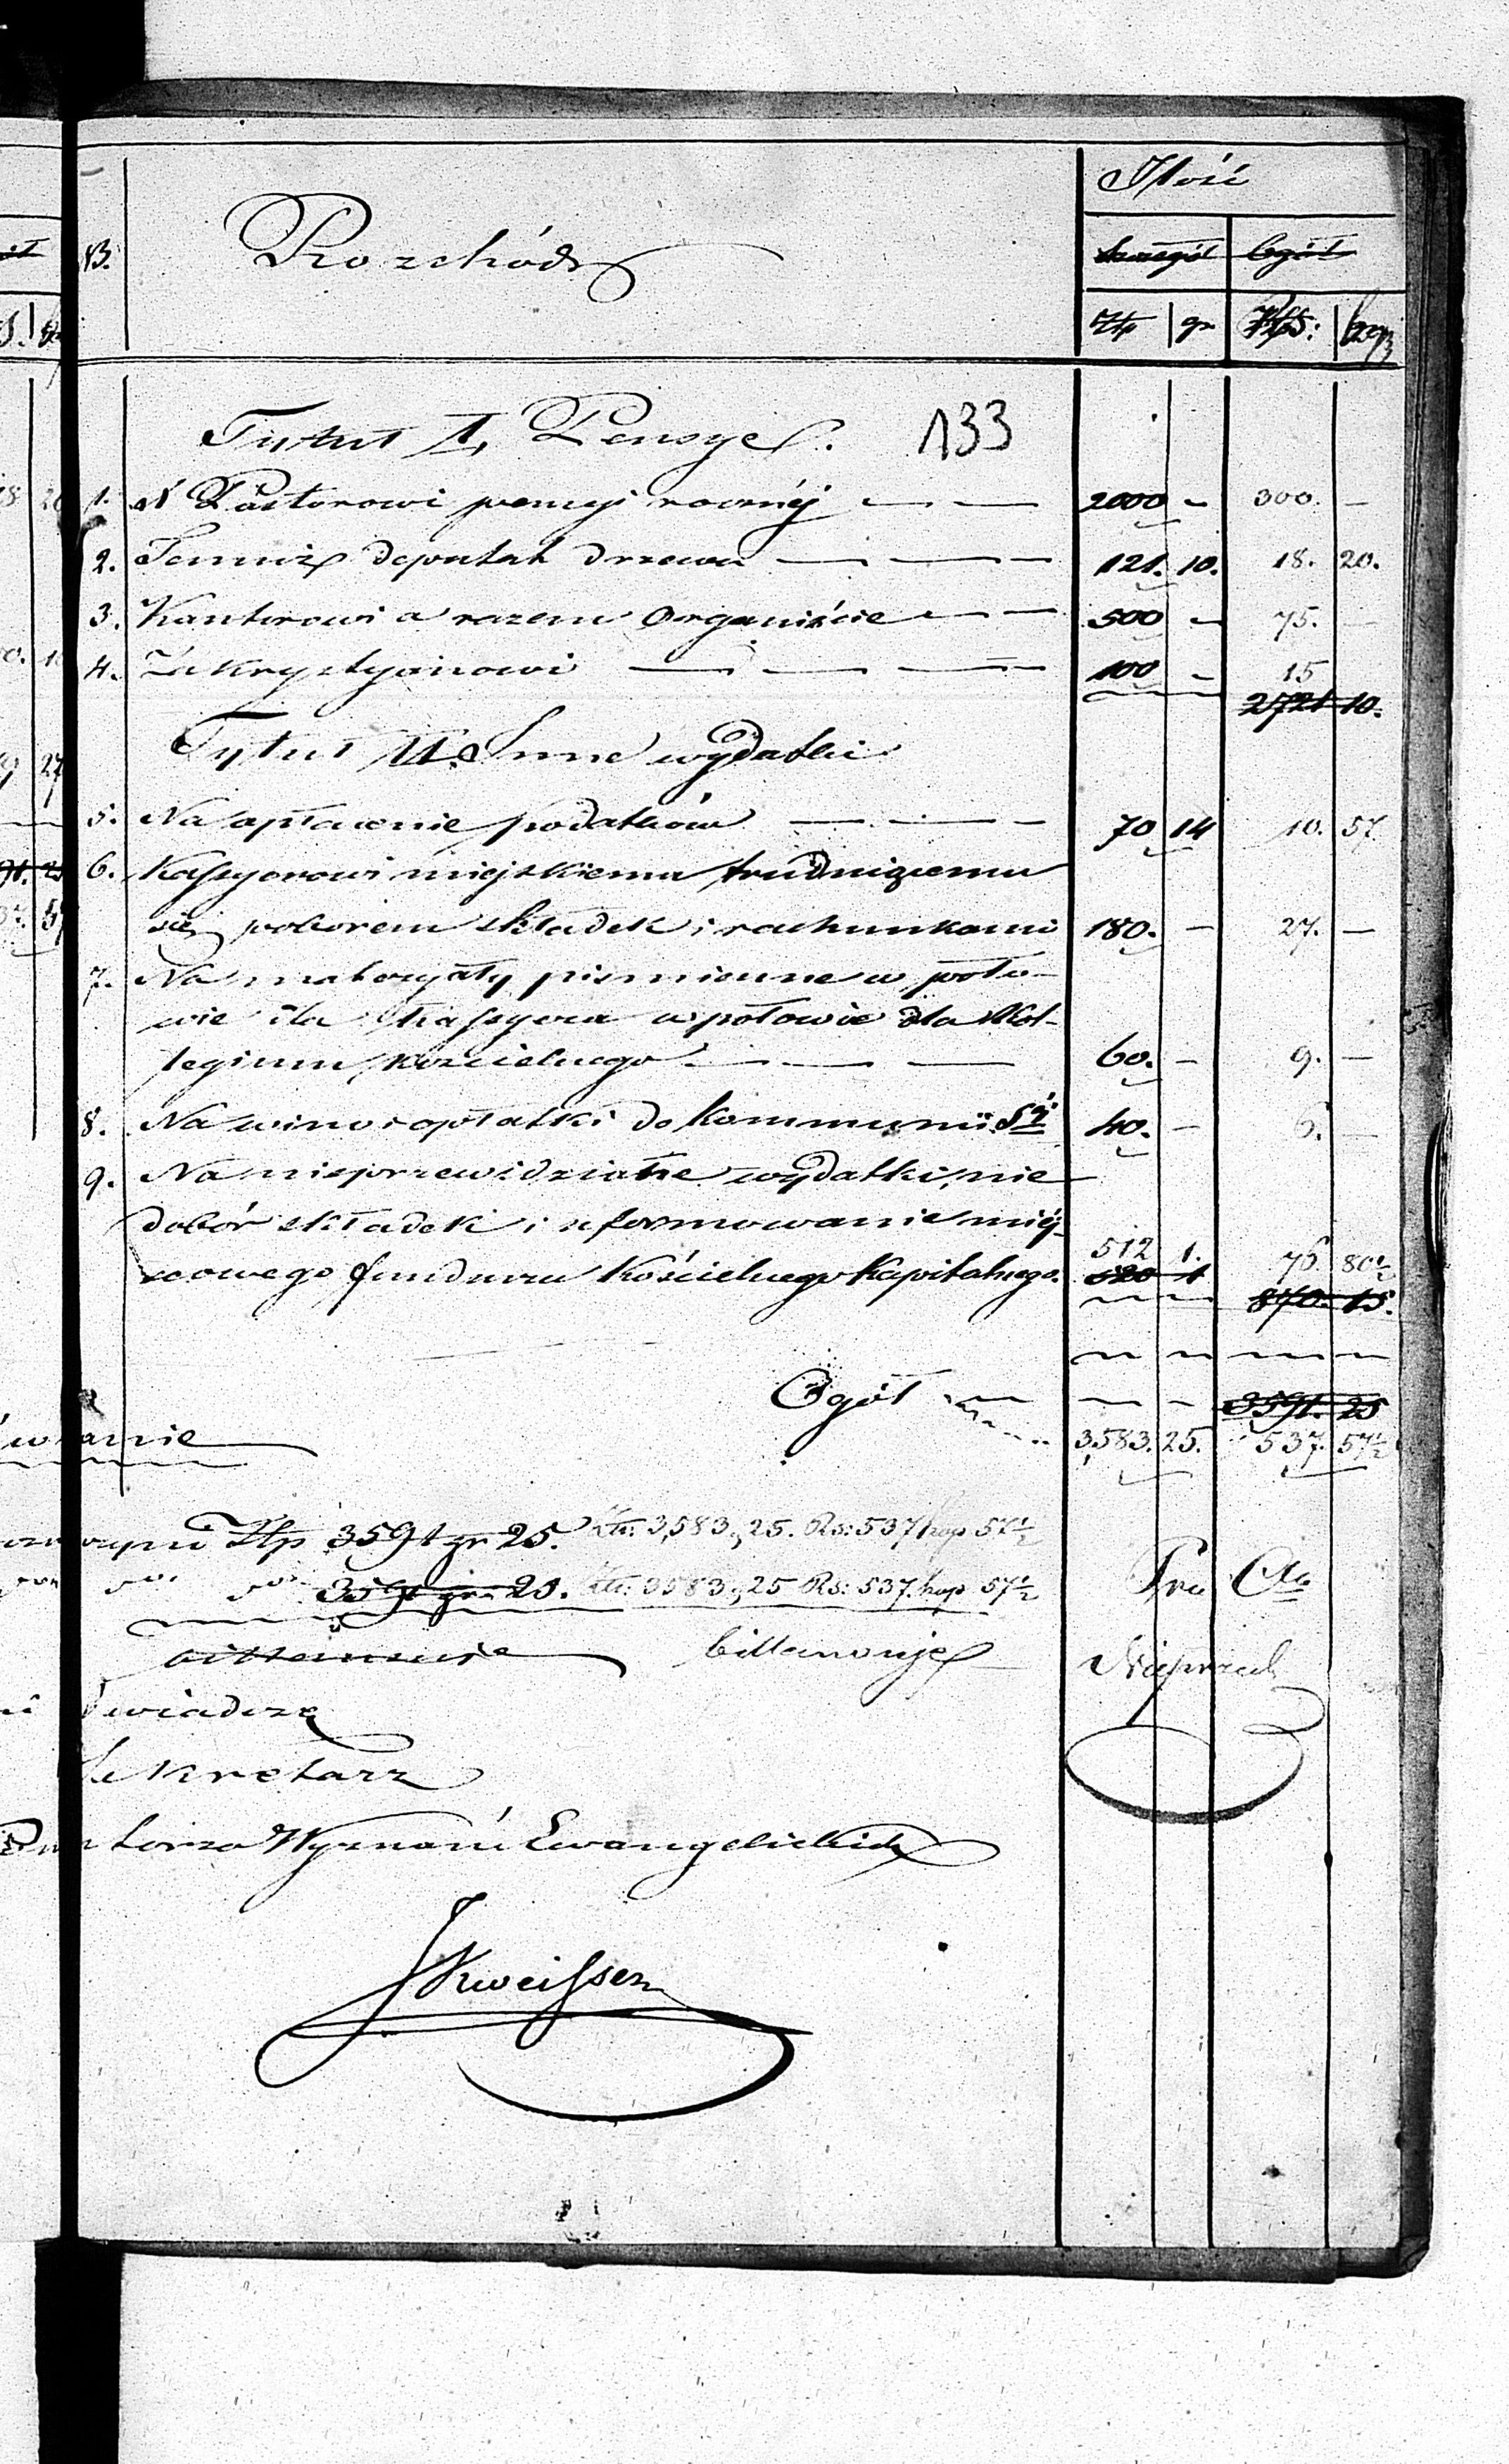 Ilość
N3. Rozchód
szczegół ogół
Złp gr RS: kop
Tytuł I, Pensye. 133
1. Pastorowi pensyi rocznéj — — 2000 - 300. —
2. Temuż deputat drzewa — — — 121. 10. 18. 20.
3. Kantorowi a razem Organiście — — 500 - 75. —
4. Zakrystyanowi — — — 100 - 15
2721 10.
Tytuł II. Inne wydatki
5. Na opłacenie podatków — — — 70 14 10. 57
6. Kassyerowi miejskiemu trudniącemu
się poborem składek i rachunkami 180. - 27. —
7. Na materyały piśmienne w poło-
wie dla Kassyera w połowie dla Kol-
legium Kościelnego — — — 60. - 9. —
8. Na wino i opłatki do kommunii Sé 40. - 6. —
9. Na nieprzewidziane wydatki, nie
dobór składek i uformowanie miéj-
scowego funduszu Kościelnego Kapitalnego. 512 1. 76. 80½
520 1
870. 15.
Ogół — — - 3591. 25
3,583. 25. 537. 57½
Złp 3591 gr 25. Złt: 3,583,, 25. Rs: 537 kop 57½
3591 gr 25. Złt: 3583,, 25 Rs: 537. kop 57½
Pra
billansuje
Sekretarz
Wyznań Ewangelickich